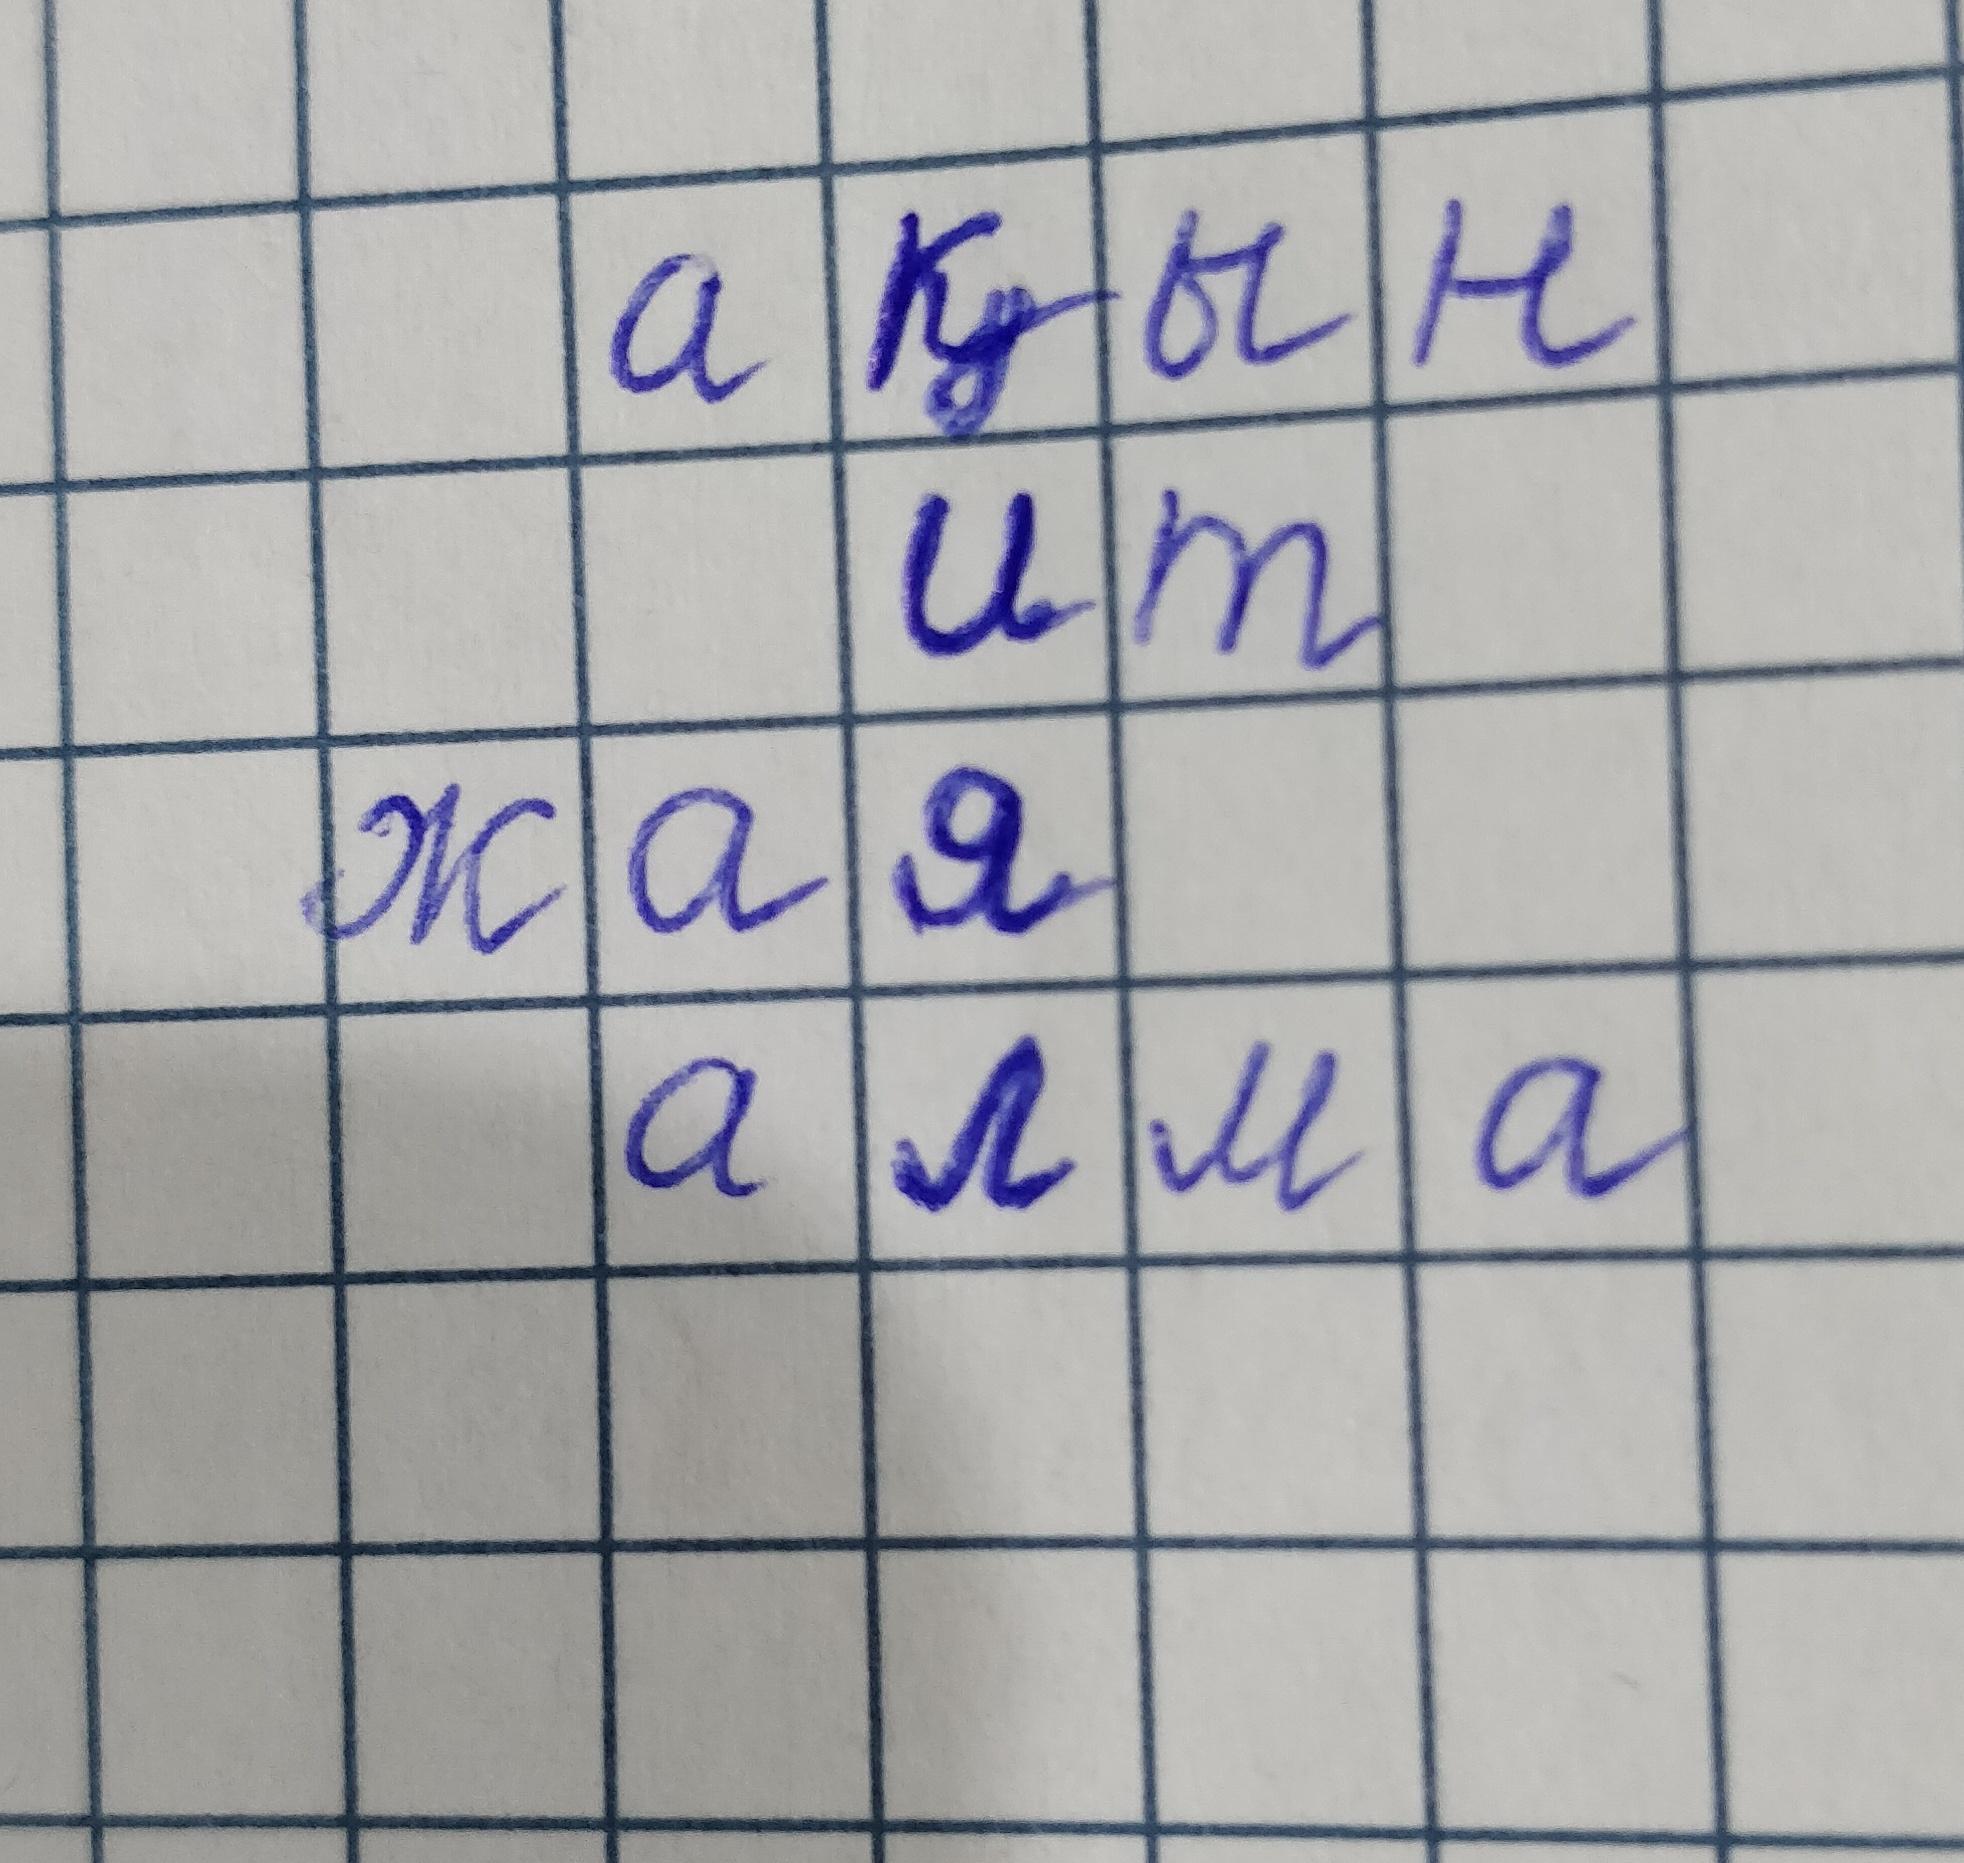 ақын
ит
жая
алма